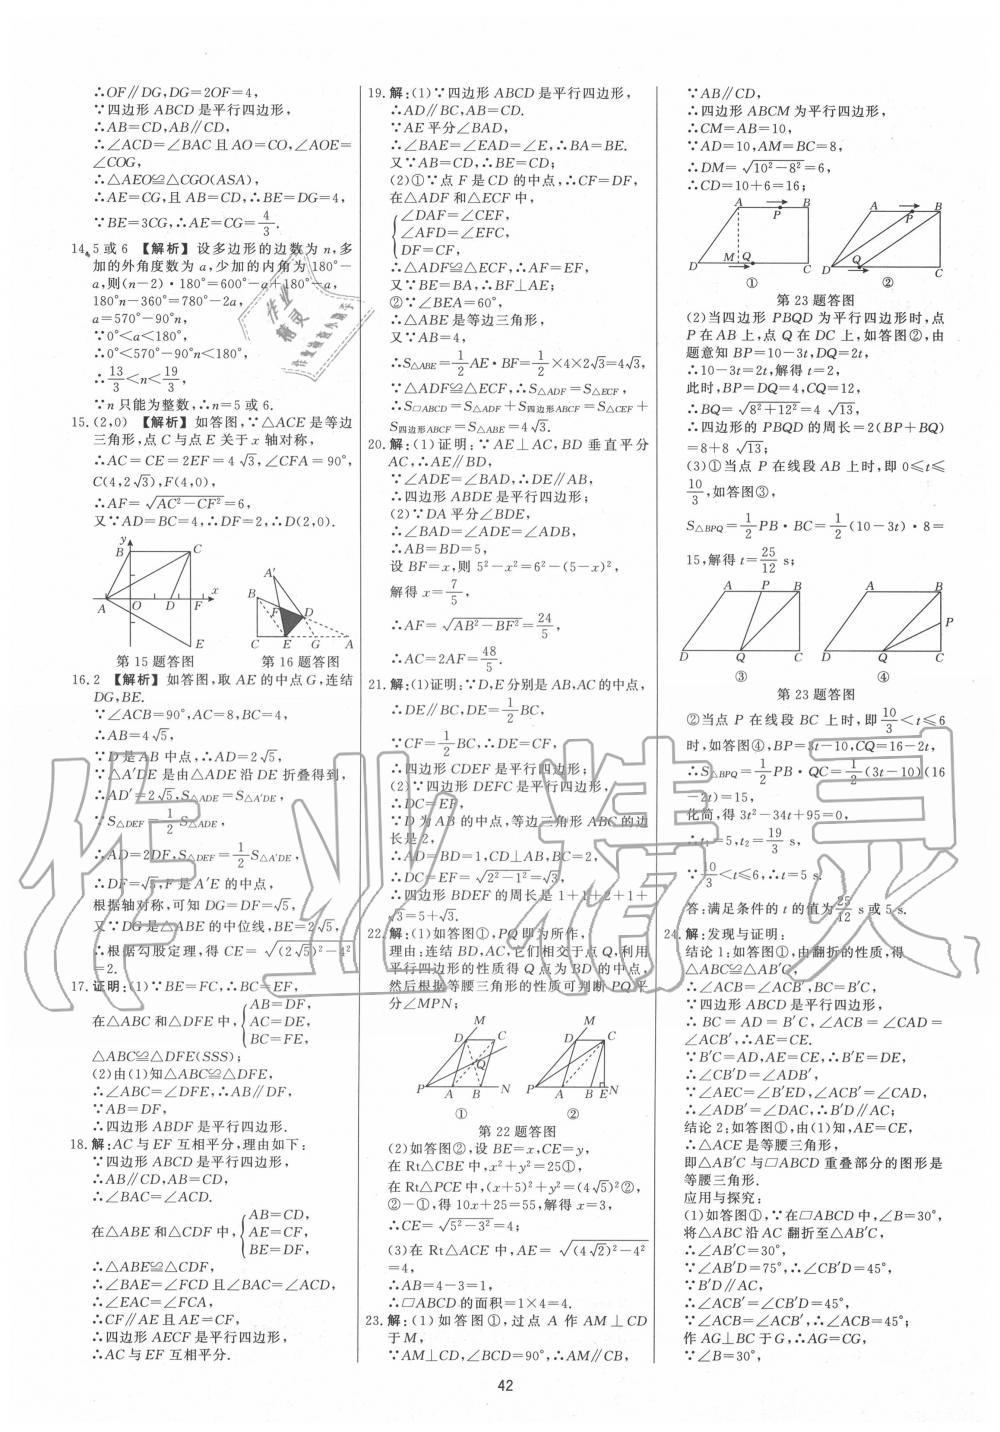 ∴OF∥DG,DG=2OF=4,
∵四边形 ABCD 是平行四边形,
∴AB=CD,AB∥CD,
∴∠ACD=∠BAC 且 AO=CO,∠AOE=
∠COG,
∴△AEO≌△CGO(ASA),
∴AE=CG,且 AB=CD,∴BE=DG=4,
∵BE=3CG,∴AE=CG=4/3.
14.5 或 6 【解析】设多边形的边数为 n,多
加的外角度数为 a,少加的内角为 180°-
a,则(n-2)·180°=600°-a+180°-a,
180°n-360°=780°-2a,
a=570°-90°n,
∵0°<a<180°,
∴0°<570°-90°n<180°,
∴13/3<n<19/3,
∵n 只能为整数,∴n=5 或 6.
15.(2,0) 【解析】如答图,∵△ACE 是等边
三角形,点 C 与点 E 关于 x 轴对称,
∴AC=CE=2EF=4√3,∠CFA=90°,
C(4,2√3),F(4,0),
∴AF=√(AC²-CF²)=6,
又∵AD=BC=4,∴DF=2,∴D(2,0).
y B C A O D F x E
A′ B F D C E G A
第 15 题答图 第 16 题答图
16.2 【解析】如答图,取 AE 的中点 G,连结
DG,BE.
∵∠ACB=90°,AC=8,BC=4,
∴AB=4√5,
∵D 是 AB 中点,∴AD=2√5,
∵△A′DE 是由△ADE 沿 DE 折叠得到,
∴AD′=2√5,S△ADE=S△A′DE,
∵S△DEF=1/2 S△ADE,
∴AD=2DF,S△DEF=1/2 S△A′DE,
∴DF=√5,F 是 A′E 的中点,
根据轴对称,可知 DG=DF=√5,
又∵DG 是△ABE 的中位线,BE=2√5,
∴根据勾股定理,得 CE=√((2√5)²-4²)
=2.
17.证明:(1)∵BE=FC,∴BC=EF,
在△ABC 和△DFE 中,{AB=DF,
AC=DE,
BC=FE,
△ABC≌△DFE(SSS);
(2)由(1)知△ABC≌△DFE,
∴∠ABC=∠DFE,∴AB∥DF,
∵AB=DF,
∴四边形 ABDF 是平行四边形.
18.解:AC 与 EF 互相平分,理由如下:
∵四边形 ABCD 是平行四边形,
∴AB∥CD,AB=CD,
∴∠BAC=∠ACD.
在△ABE 和△CDF 中,{AB=CD,
AE=CF,
BE=DF,
∴△ABE≌△CDF,
∴∠BAE=∠FCD 且∠BAC=∠ACD,
∴∠EAC=∠FCA,
∴CF∥AE 且 AE=CF,
∴四边形 AECF 是平行四边形,
∴AC 与 EF 互相平分.
19.解:(1)∵四边形 ABCD 是平行四边形,
∴AD∥BC,AB=CD.
∵AE 平分∠BAD,
∴∠BAE=∠EAD=∠E,∴BA=BE.
又∵AB=CD,∴BE=CD;
(2)①∵点 F 是 CD 的中点,∴CF=DF,
在△ADF 和△ECF 中,
{∠DAF=∠CEF,
∠AFD=∠EFC,
DF=CF,
∴△ADF≌△ECF,∴AF=EF,
又∵BE=BA,∴BF⊥AE;
②∵∠BEA=60°,
∴△ABE 是等边三角形,
又∵AB=4,
∴S△ABE=1/2 AE·BF=1/2×4×2√3=4√3,
∵△ADF≌△ECF,∴S△ADF=S△ECF,
∴S□ABCD=S△ADF+S四边形ABCF=S△CEF+
S四边形ABCF=S△ABE=4√3.
20.解:(1)证明:∵AE⊥AC,BD 垂直平分
AC,∴AE∥BD,
∵∠ADE=∠BAD,∴DE∥AB,
∴四边形 ABDE 是平行四边形;
(2)∵DA 平分∠BDE,
∴∠BAD=∠ADE=∠ADB,
∴AB=BD=5,
设 BF=x,则 5²-x²=6²-(5-x)²,
解得 x=7/5,
∴AF=√(AB²-BF²)=24/5,
∴AC=2AF=48/5.
21.解:(1)证明:∵D,E 分别是 AB,AC 的中点,
∴DE∥BC,DE=1/2 BC,
∵CF=1/2 BC,∴DE=CF,
∴四边形 CDEF 是平行四边形;
(2)∵四边形 DEFC 是平行四边形,
∴DC=EF,
∵D 为 AB 的中点,等边三角形 ABC 的边
长是 2,
∴AD=BD=1,CD⊥AB,BC=2,
∴DC=EF=√(2²-1²)=√3,
∴四边形 BDEF 的周长是 1+1+2+1+
√3=5+√3.
22.解:(1)如答图①,PQ 即为所作,
理由:连结 BD,AC,它们相交于点 Q,利用
平行四边形的性质得 Q 点为 BD 的中点,
然后根据等腰三角形的性质可判断 PQ 平
分∠MPN;
M D C Q P A B N ①
M D C P A B E N ②
第 22 题答图
(2)如答图②,设 BE=x,CE=y,
在 Rt△CBE 中,x²+y²=25①,
在 Rt△PCE 中,(x+5)²+y²=(4√5)²②,
②-①,得 10x+25=55,解得 x=3,
∴CE=√(5²-3²)=4;
(3)在 Rt△ACE 中,AE=√((4√2)²-4²)
=4,
∴AB=4-3=1,
∴□ABCD 的面积=1×4=4.
23.解:(1)如答图①,过点 A 作 AM⊥CD
于 M,
∵AM⊥CD,∠BCD=90°,∴AM∥CB,
∵AB∥CD,
∴四边形 ABCM 为平行四边形,
∴CM=AB=10,
∵AD=10,AM=BC=8,
∴DM=√(10²-8²)=6,
∴CD=10+6=16;
A P B D M Q C ①
A P B D Q C ②
第 23 题答图
(2)当四边形 PBQD 为平行四边形时,点
P 在 AB 上,点 Q 在 DC 上,如答图②,由
题意知 BP=10-3t,DQ=2t,
∴10-3t=2t,解得 t=2,
此时,BP=DQ=4,CQ=12,
∴BQ=√(8²+12²)=4√13,
∴四边形的 PBQD 的周长=2(BP+BQ)
=8+8√13;
(3)①当点 P 在线段 AB 上时,即 0≤t≤
10/3,如答图③,
S△BPQ=1/2 PB·BC=1/2(10-3t)·8=
15,解得 t=25/12 s;
A P B D Q C ③
A B P D Q C ④
第 23 题答图
②当点 P 在线段 BC 上时,即10/3<t≤6
时,如答图④,BP=3t-10,CQ=16-2t,
∴S△BPQ=1/2 PB·QC=1/2(3t-10)(16
-2t)=15,
化简,得 3t²-34t+95=0,
∴t₁=5,t₂=19/3 s,
∵10/3<t≤6,∴t=5 s.
答:满足条件的 t 的值为25/12 s 或 5 s.
24.解:发现与证明:
结论 1:如答图①,由翻折的性质,得
△ABC≌△AB′C,
∴∠ACB=∠ACB′,BC=B′C,
∵四边形 ABCD 是平行四边形,
∴BC=AD=B′C,∠ACB=∠CAD=
∠ACB′,∴AE=CE.
∵B′C=AD,AE=CE,∴B′E=DE,
∴∠CB′D=∠ADB′,
∵∠AEC=∠B′ED,∠ACB′=∠CAD,
∴∠ADB′=∠DAC,∴B′D∥AC;
结论 2:如答图①,由(1)知,AE=CE,
∴△ACE 是等腰三角形,
即△AB′C 与□ABCD 重叠部分的图形是
等腰三角形.
应用与探究:
(1)如答图①,∵在□ABCD 中,∠B=30°,
将△ABC 沿 AC 翻折至△AB′C,
∴∠AB′C=30°,
∵∠AB′D=75°,∴∠CB′D=45°,
∵B′D∥AC,
∴∠ACB′=∠CB′D=45°,
∵∠ACB=∠ACB′,∴∠ACB=45°;
作 AG⊥BC 于 G,∴AG=CG,
∵∠B=30°,
42
作业精灵
作业精灵